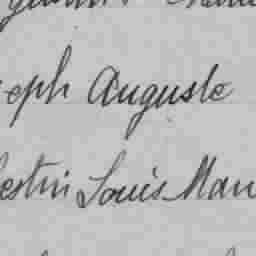 eph Auguste
estin Louis Mar